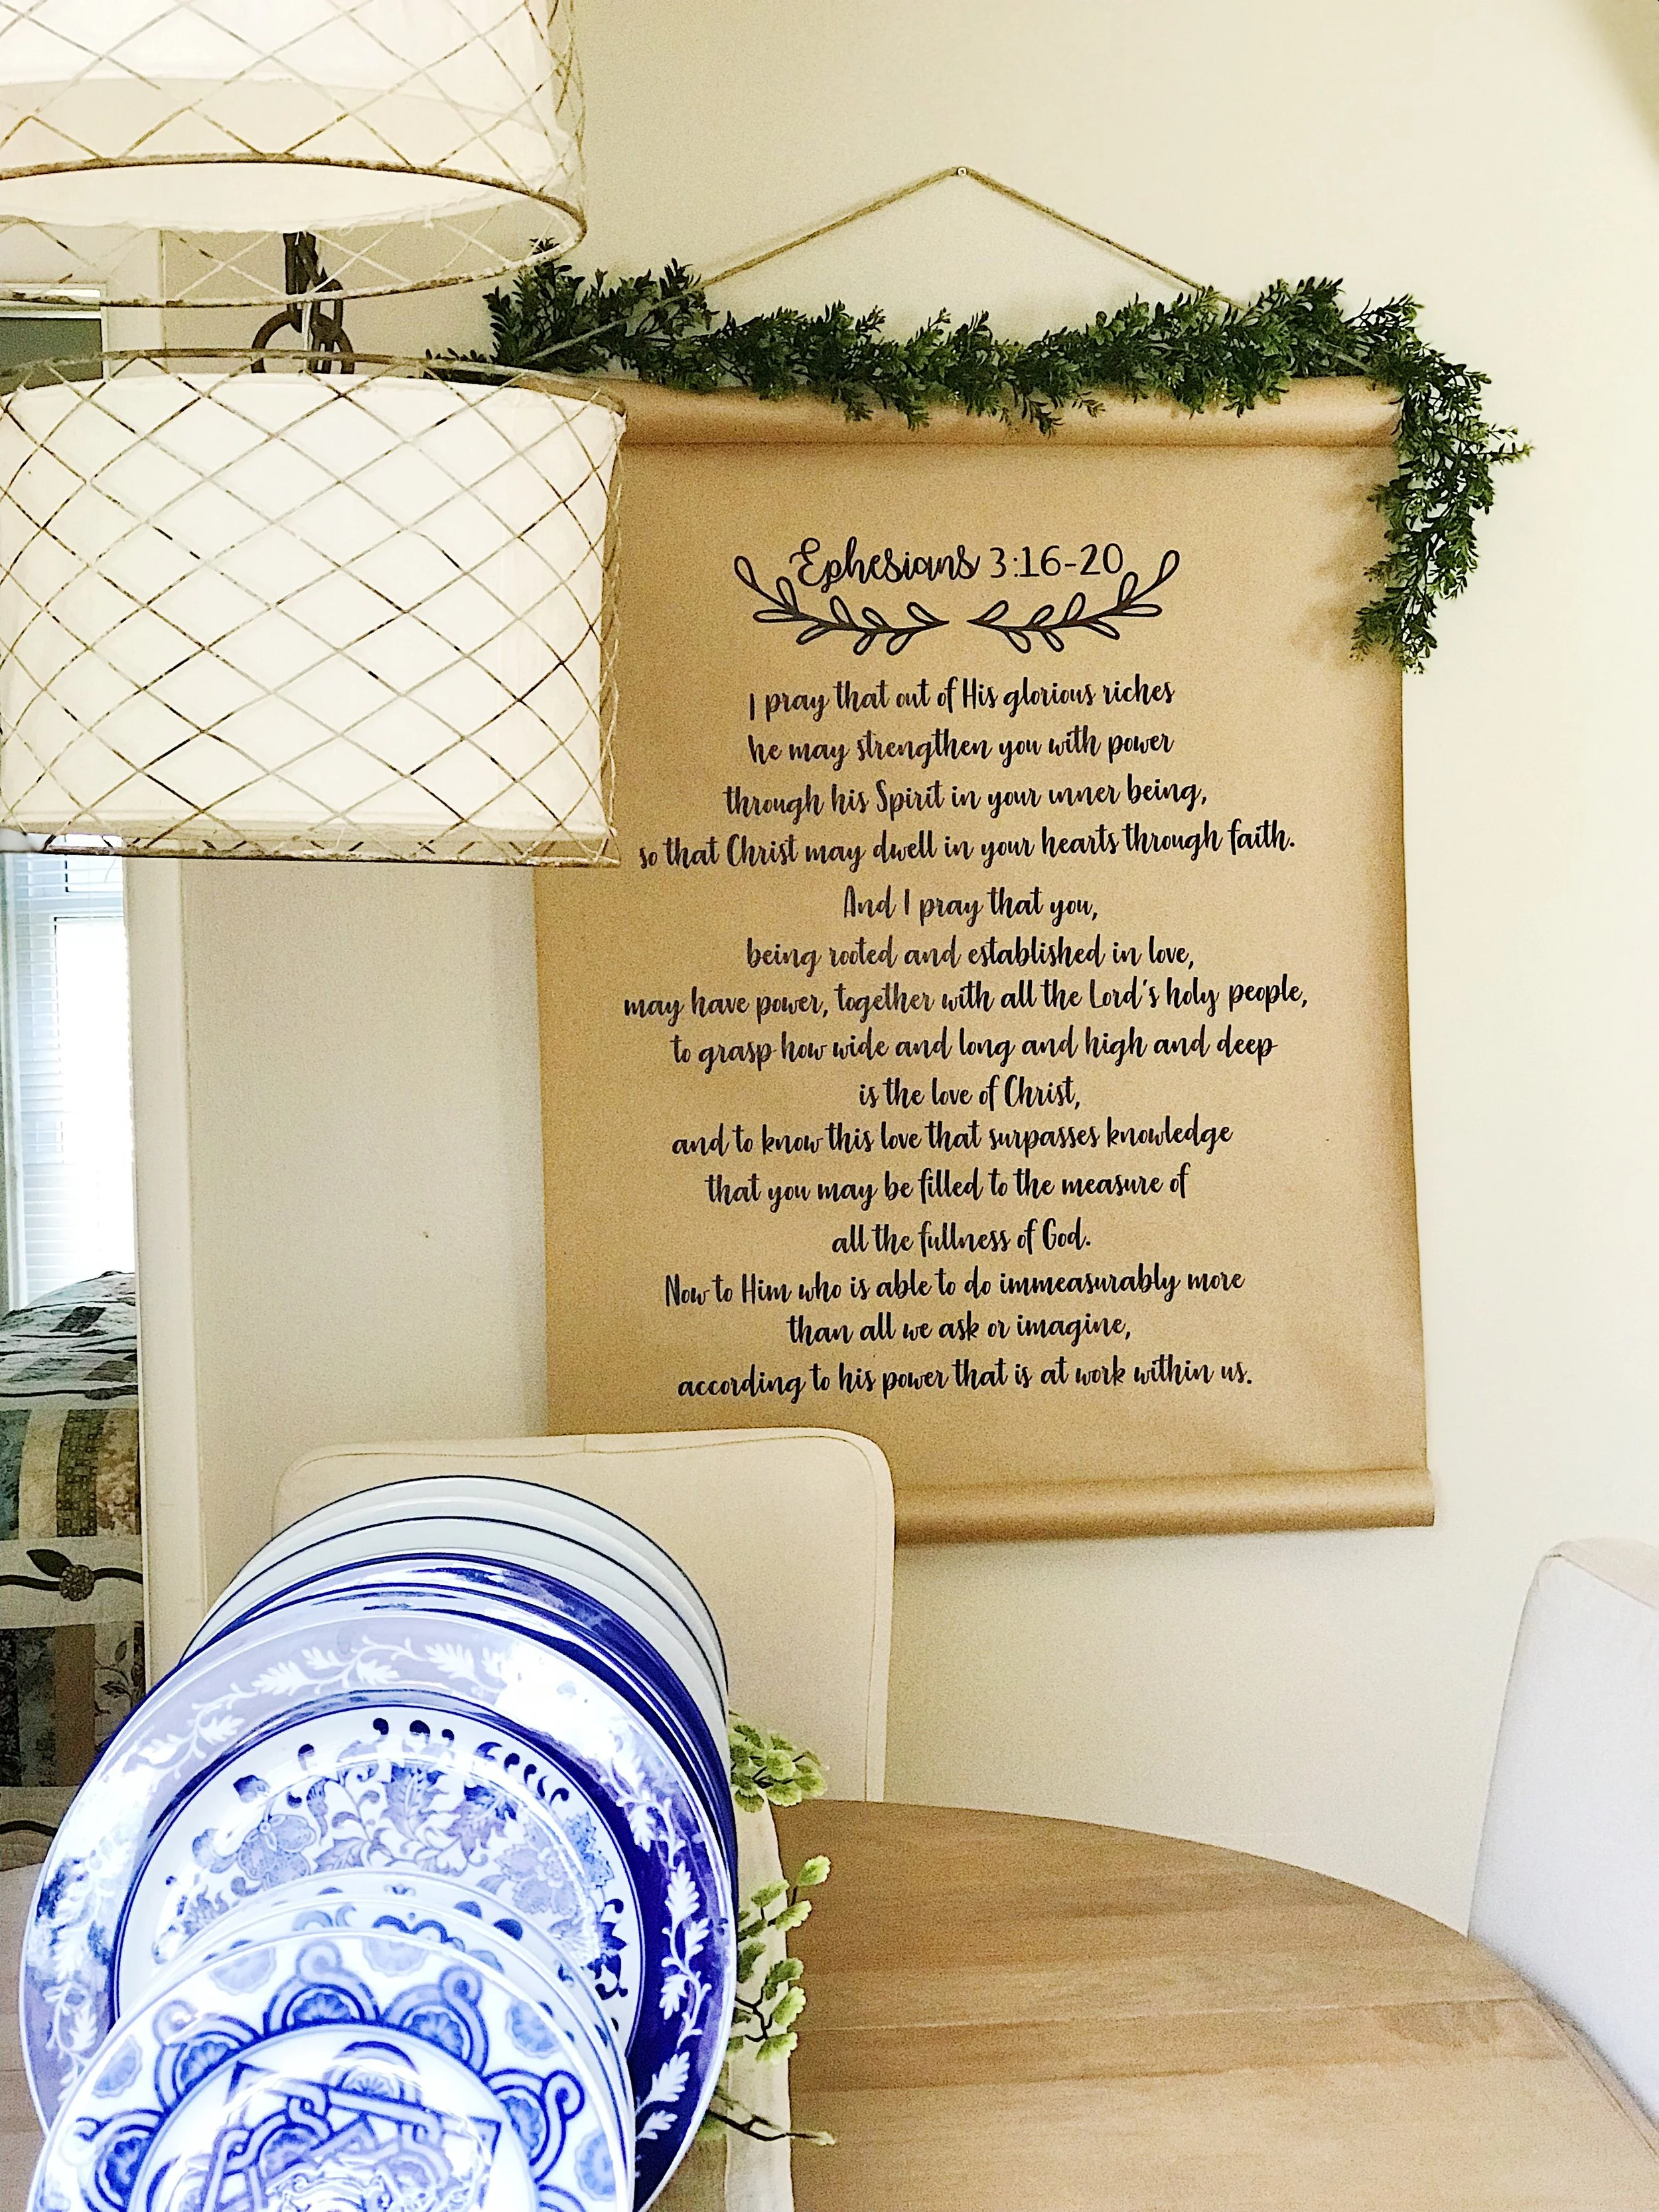 Ephesians 3:16-20
I pray that out of His glorious riches
he may strengthen you with power
through his Spirit in your inner being,
so that Christ may dwell in your hearts through faith.
And I pray that you,
being rooted and established in love,
may have power, together with all the Lord's holy people,
to grasp how wide and long and high and deep
is the love of Christ,
and to know this love that surpasses knowledge
that you may be filled to the measure of
all the fullness of God.
Now to Him who is able to do immeasurably more
than all we ask or imagine,
according to his power that is at work within us.